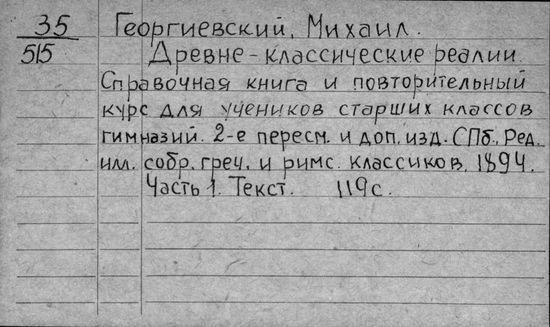 35 Георгиевский, Михаил.
515 Древне-классические реалии.
Справочная книга и повторительный
курс для учеников старших классов
гимназий. 2-е пересм. и доп. изд. СПб., Ред.
илл. собр. греч. и римс. классиков, 1894.
Часть 1. Текст. 119с.